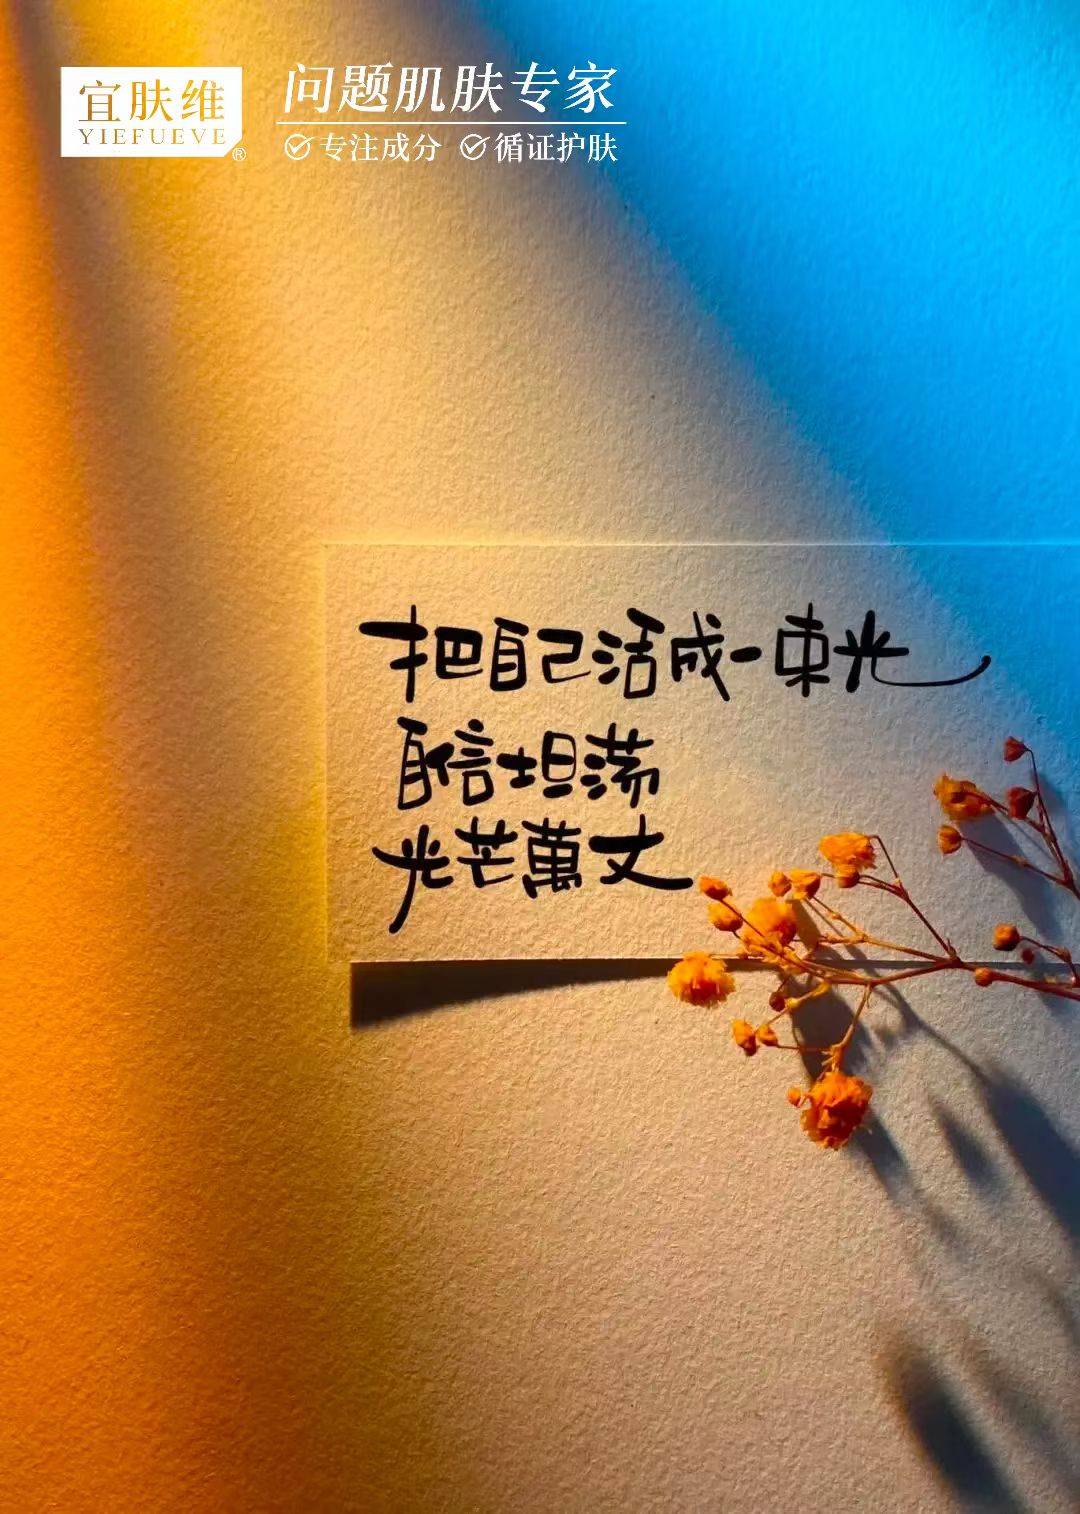 宜肤维
YIEFUEVE
®
问题肌肤专家
专注成分 循证护肤
把自己活成一束光
自信坦荡
光芒萬丈